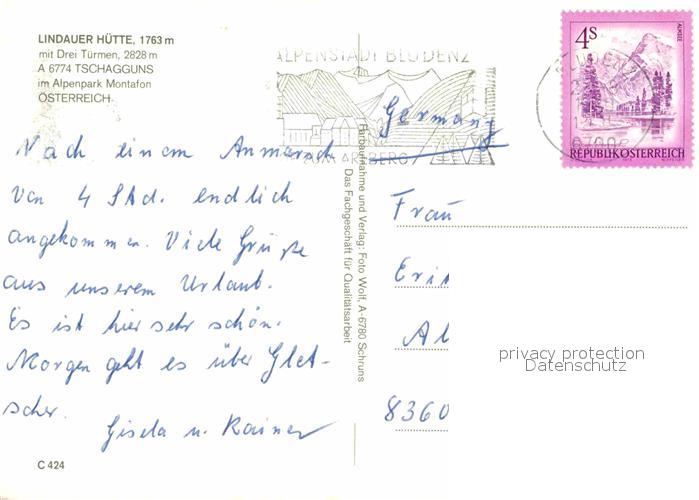 LINDAUER HÜTTE, 1763 m
mit Drei Türmen, 2828 m
A 6774 TSCHAGGUNS
im Alpenpark Montafon
ÖSTERREICH
Nach einem Anmarsch
von 4 Std. endlich
angekommen. Viele Grüße
aus unserem Urlaub.
Es ist hier sehr schön.
Morgen geht es über Glet-
scher.
Gisela u. Rainer
C 424
Farbaufnahme und Verlag: Foto Wolf, A-6780 Schruns
Das Fachgeschäft für Qualitätsarbeit
ALPENSTADT BLUDENZ
AM ARLBERG
4S
ALMSEE
REPUBLIK ÖSTERREICH
Germany
Frau
Eri
Al
8360
privacy protection
Datenschutz